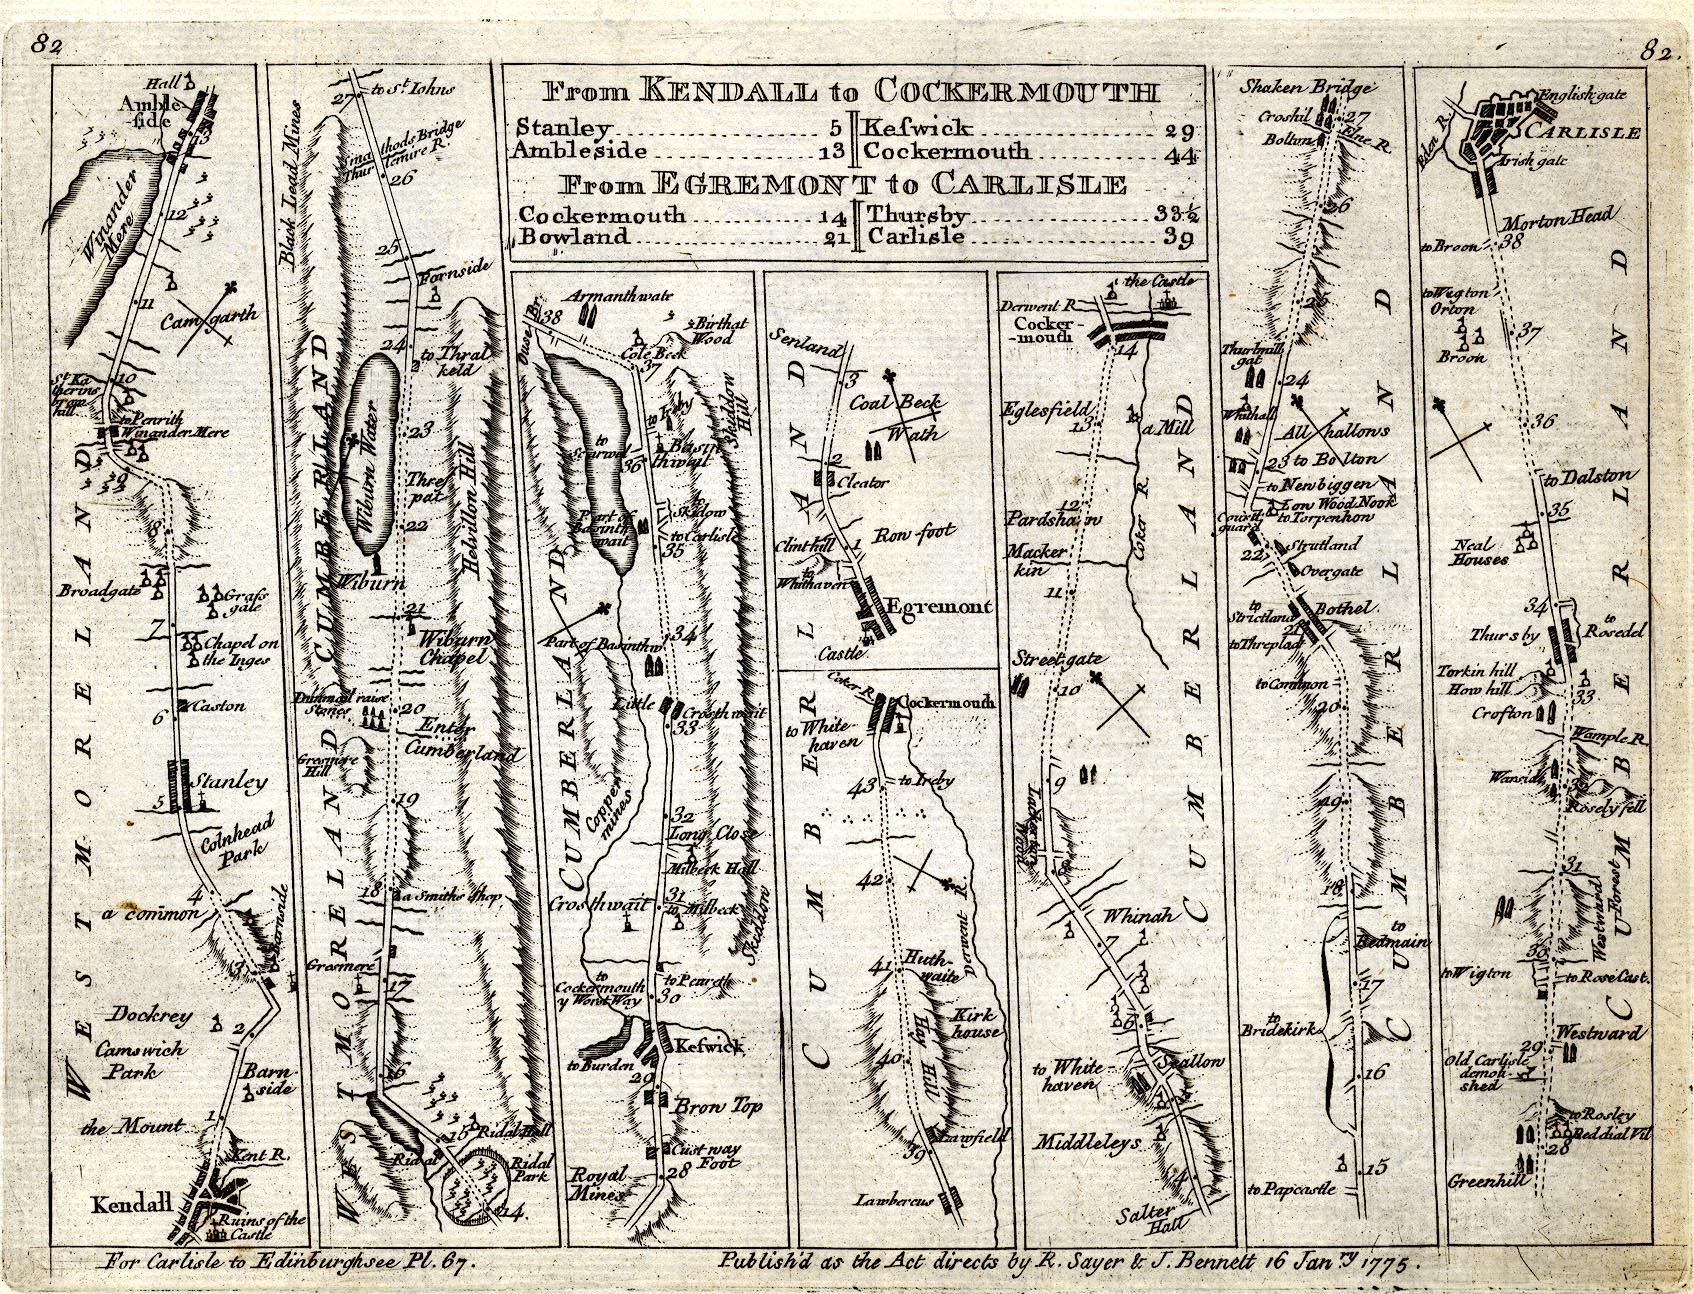 82
82.
From KENDALL to COCKERMOUTH
Stanley 5
Ambleside 13
Keſwick 29
Cockermouth 44
From EGREMONT to CARLISLE
Cockermouth 14
Bowland 21
Thursby 33½
Carlisle 39
Hall
Amble-
-ſide
13
Winander
Mere
12
11
Cam garth
10
St Ka
therins
brow
hill
to Penrith
Winander Mere
9
8
Broadgate
Graſs
gale
7
Chapel on
the Inges
6
Caston
Stanley
5
Colnhead
Park
4
a common
Burnside
3
Dockrey
2
Camswich
Park
Barn-
side
the Mount
1
Kent R.
Kendall
Ruins of the
Castle
WESTMORELAND
27
to St Iohns
Black Lead Mines
Smathods Bridge
26
25
Fornside
24
to Thral
keld
23
Wiburn Water
Thre
pat
22
Helvillon Hill
Wiburn
21
Wiburn
Chapel
Dunmail raise
Stones
20
Enter
Cumberland
Grasmere
Hill
19
18
a Smiths shop
Grasmere
17
16
15
Ridal Hall
Ridal
Ridal
Park
14
CUMBERLAND
WESTMORELAND
Ouse Br.
Armanthwate
38
Birthat
Wood
Cole Beck
37
to Ireby
Skiddow
Hill
to
36
Basin
thwait
Part of
Basinth
wait
to
Skidow
to Carlisle
35
34
Part of Basinthw
Little
Crosthwait
33
Copper
mines
32
Long Close
Milbeck Hall
31
to Milbeck
Crosthwait
Skiddow
to
Cockermouth
y Worst Way
to Peareth
30
Keſwick
to Burden
29
Bron Top
Custway
Foot
28
Royal
Mines
CUMBERLAND
Senland
3
Coal Beck
Wath
2
Cleator
Row foot
Clint hill
1
to
Whithaven
Egremont
Castle
Coker R.
Cockermouth
to White-
haven
43
to Ireby
42
Derwent R.
41
Huth-
waite
Kirk
house
40
Hay Hill
39
Lawfield
Lawbercus
CUMBERLAND
the Castle
Derwent R.
Cocker-
-mouth
14
Eglesfield
13
a Mill
12
Pardshaw
Coker R.
Macker
kin
11
Street gate
10
9
8
Whinah
7
6
Scallow
to White-
haven
Middleleys
4
Salter
Hall
CUMBERLAND
Shaken Bridge
Croshil
27
Bolton
Elne R.
26
25
Thurbmill
gat
24
Whithall
All hallows
23
to Bolton
to Newbiggen
Low Wood Nook
to Torpenhon
22
Strutland
Overgate
to
Strictland
Bothel
21
to Threpland
to Common
20
19
18
to
Redmain
17
to
Bridekirk
16
15
to Papcastle
CUMBERLAND
English gate
CARLISLE
Irish gate
Morton Head
to Broon
38
to Wigton
Orton
37
Broon
36
to Dalston
35
Neal
Houses
34
Thursby
to
Rosedel
Torkin hill
How hill
33
Crofton
Wample R.
32
Rosely fell
31
Westward
Forrest
30
to Wigton
to Rose Cast.
Westward
29
Old Carlisle
demoli-
shed
to Rosley
Red dial Vil
28
Greenhill
CUMBERLAND
For Carlisle to Edinburgh see Pl. 67.
Publish'd as the Act directs by R. Sayer & J. Bennett 16 Janry 1775.